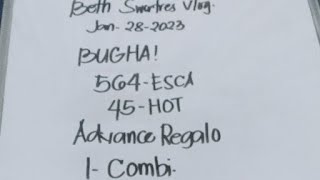 Beth Swertres Vlog.
Jan-28-2023
BUGHA!
564-ESCA
45-HOT
Advance Regalo
1-Combi.